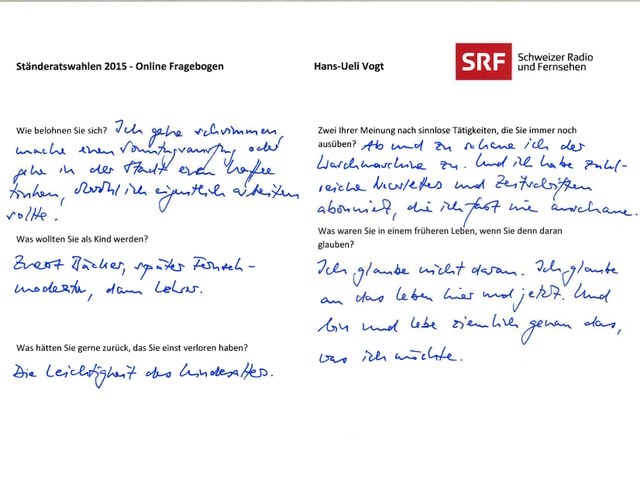 Ständeratswahlen 2015 - Online Fragebogen
Hans-Ueli Vogt
SRF Schweizer Radio
und Fernsehen
Wie belohnen Sie sich? Ich gehe schwimmen,
mache einen Sonntagsausflug oder
gehe in der Stadt einen Kaffee
trinken, obwohl ich eigentlich arbeiten
sollte.
Was wollten Sie als Kind werden?
Zuerst Bäcker, später Fernseh-
moderator, dann Lehrer.
Was hätten Sie gerne zurück, das Sie einst verloren haben?
Die Leichtigkeit des Kindesalters.
Zwei Ihrer Meinung nach sinnlose Tätigkeiten, die Sie immer noch
ausüben? Ab und zu schaue ich der
Waschmaschine zu. Und ich habe zahl-
reiche Newsletters und Zeitschriften
abonniert, die ich fast nie anschaue.
Was waren Sie in einem früheren Leben, wenn Sie denn daran
glauben?
Ich glaube nicht daran. Ich glaube
an das Leben hier und jetzt. Und
bin und lebe ziemlich genau das,
was ich möchte.